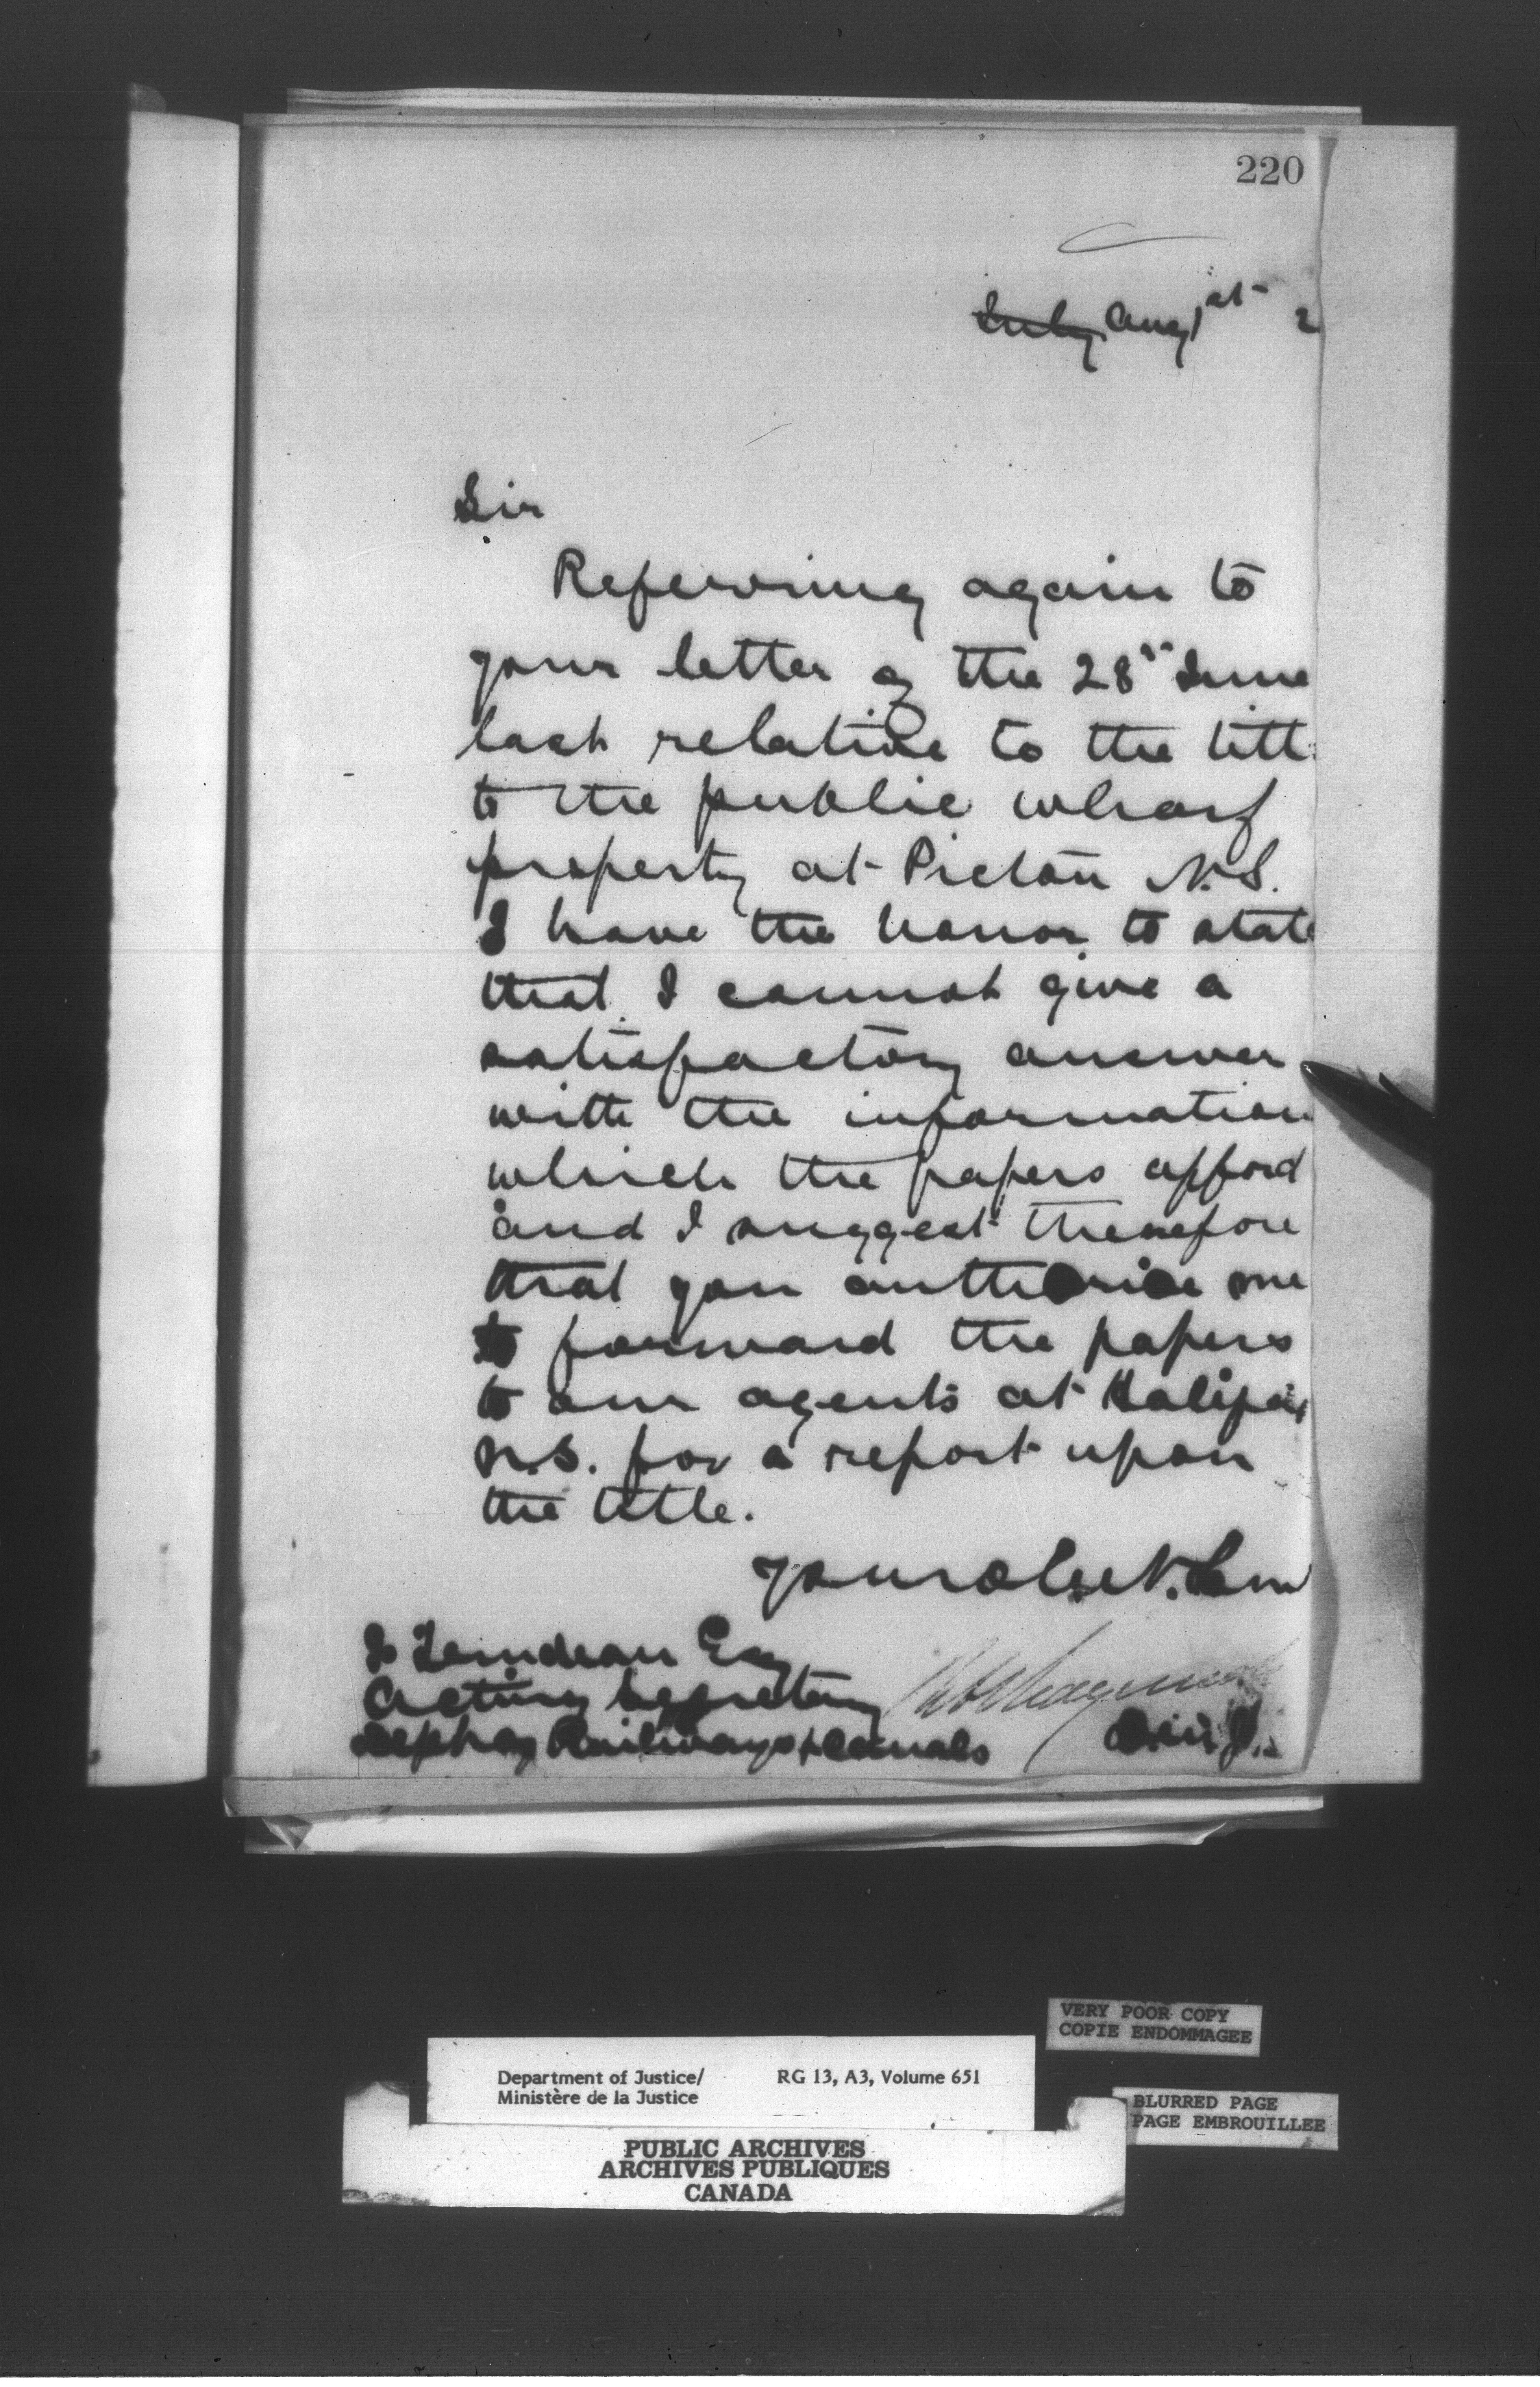 220
July Aug 1st 2
Sir
Referring again to
your letter of the 28th June
last relative to the titl
to the public wharf
property at Pictou N.S.
I have the honor to state
that I cannot give a
satisfactory answer
with the information
which the papers afford
and I suggest therefore
that you authorise me
to forward the papers
to our agents at Halifax
N.S. for a report upon
the title.
Your Obt.
Esq
Acting Secretary
Dept of Railways & Canals
VERY POOR COPY
COPIE ENDOMMAGEE
Department of Justice/ RG 13, A3, Volume 651
Ministère de la Justice
BLURRED PAGE
PAGE EMBROUILLEE
PUBLIC ARCHIVES
ARCHIVES PUBLIQUES
CANADA